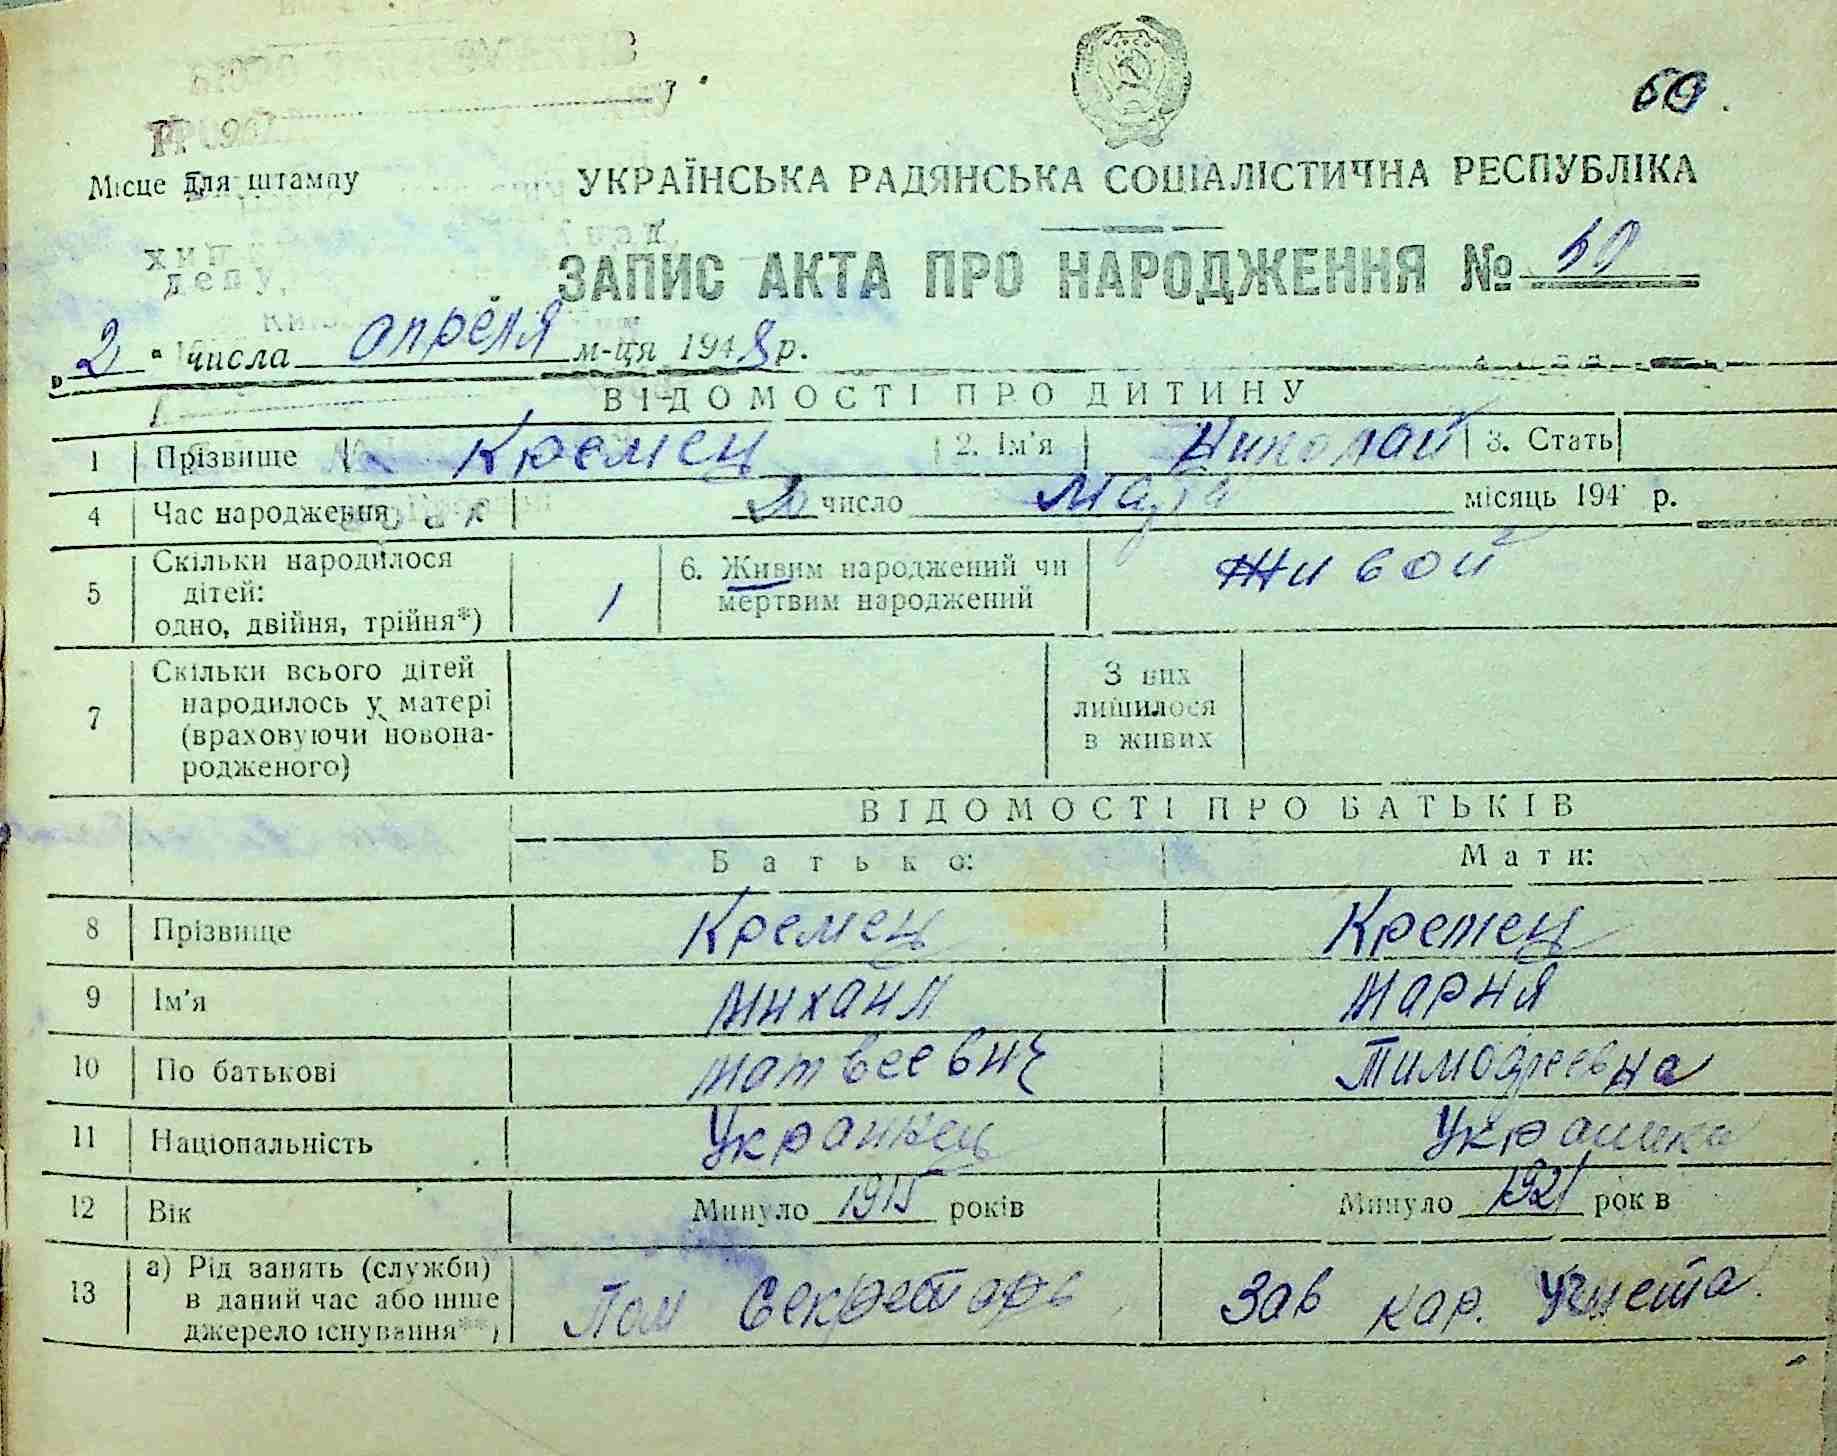 60.
Місце для штампу
УКРАЇНСЬКА РАДЯНСЬКА СОЦІАЛІСТИЧНА РЕСПУБЛІКА
ЗАПИС АКТА ПРО НАРОДЖЕННЯ № 60
„2" числа апреля м-ця 1948 р.
ВІДОМОСТІ ПРО ДИТИНУ
1 Прізвище Кремец 2. Ім'я Николай 3. Стать
4 Час народження число Марта місяць 194 р.
5 Скільки народилося дітей: одно, двійня, трійня*) 1 6. Живим народжений чи мертвим народжений Живой
7 Скільки всього дітей народилось у матері (враховуючи новона-родженого) З них лишилося в живих
ВІДОМОСТІ ПРО БАТЬКІВ
Батько: Мати:
8 Прізвище Кремец Кремец
9 Ім'я Михаил Мария
10 По батькові Матвеевич Тимофеевна
11 Національність Украинец Украинка
12 Вік Минуло 1915 років Минуло 1921 рок в
13 а) Рід занять (служби) в даний час або інше джерело існування**) Пом Секретарь Зав кар. Учмета.